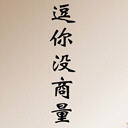 逗你没商量